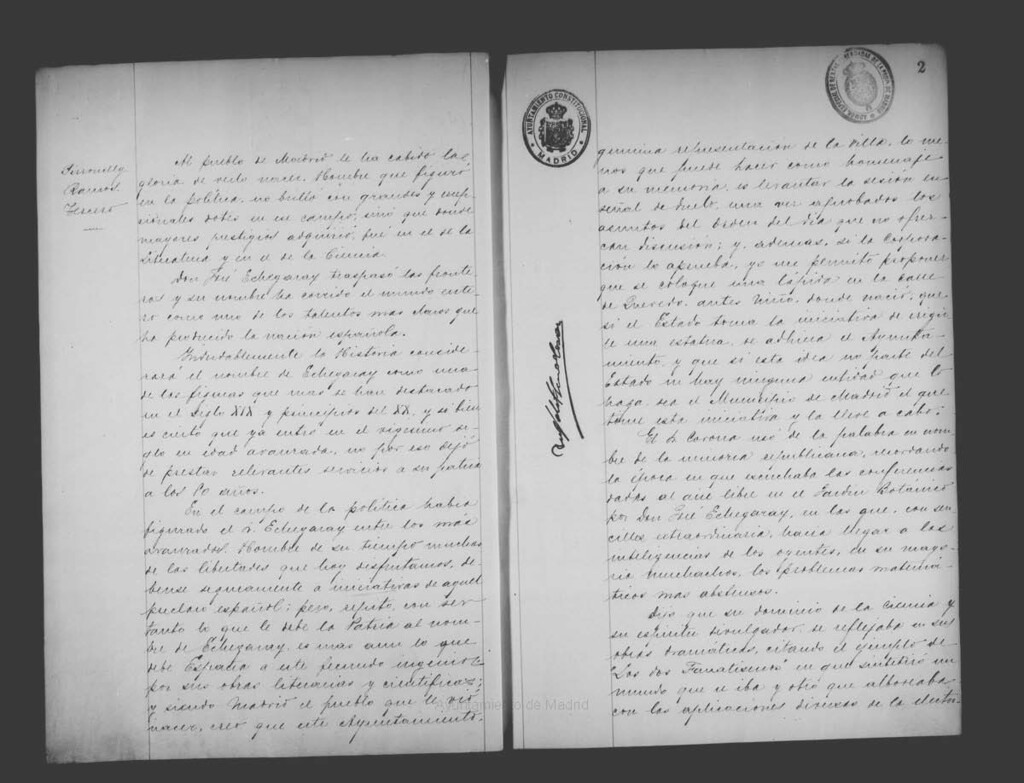 Ramos
Al pueblo de Madrid le ha cabido la
gloria de verlo nacer. Hombre que figuró
en la política, no brilló con grandes y
dotes en su campo, sino que donde
mayores prestigios adquirió, fué en el de la
Literatura y en el de la Ciencia.
Don José Echegaray traspasó las fronte-
ras y su nombre ha corrido el mundo ente-
ro como uno de los talentos mas claros que
ha producido la nación española.
Indudablemente la Historia conside-
rará el nombre de Echegaray como una
de las figuras que mas se han destacado
en el Siglo XIX y principios del XX, y si bien
es cierto que ya entró en el vigésimo si-
glo en edad avanzada, no por eso dejó
de prestar relevantes servicios a su patria
a los 80 años.
En el campo de la política había
figurado el Sr. Echegaray entre los mas
avanzados. Hombre de su tiempo muchas
de las libertades que hoy disfrutamos, dé-
bense seguramente a iniciativas de aquel
preclaro español; pero, repito, con ser
tanto lo que le debe la Patria al nom-
bre de Echegaray, es mas aun lo que
debe España a este fecundo ingenio
por sus obras literarias y científicas;
y siendo Madrid el pueblo que le vió
nacer, creo que este Ayuntamiento,
AYUNTAMIENTO CONSTITUCIONAL
MADRID
2
genuina representación de la Villa, lo me-
nos que puede hacer como homenaje
a su memoria, es levantar la sesión en
señal de duelo, una vez aprobados los
asuntos del orden del día que no ofrez-
can discusión; y, ademas, si la Corpora-
ción lo aprueba, yo me permito proponer
que se coloque una lápida en la calle
de Quevedo, antes Niño, donde nació, que
si el Estado toma la iniciativa de erigir-
le una estatua, se adhiera el Ayunta-
miento, y que si esta idea no parte del
Estado ni hay ninguna entidad que lo
haga, sea el Municipio de Madrid el que
tome esta iniciativa y la lleve a cabo.
El Sr. Corona usó de la palabra en nom-
bre de la minoria republicana, recordando
la época en que escuchaba las conferencias
dadas al aire libre en el Jardin Botánico
por Don José Echegaray, en las que, con sen-
cillez extraordinaria, hacia llegar a las
inteligencias de los oyentes, en su mayo-
ria muchachos, los problemas matemá-
ticos mas abstrusos.
Dijo que su dominio de la ciencia y
su espiritu divulgador, se reflejaba en sus
obras dramáticas, citando el ejemplo de
"Los dos Fanatismos" en que sintetizó un
mundo que se iba y otro que alboreaba
con las aplicaciones diversas de la
Ayuntamiento de Madrid